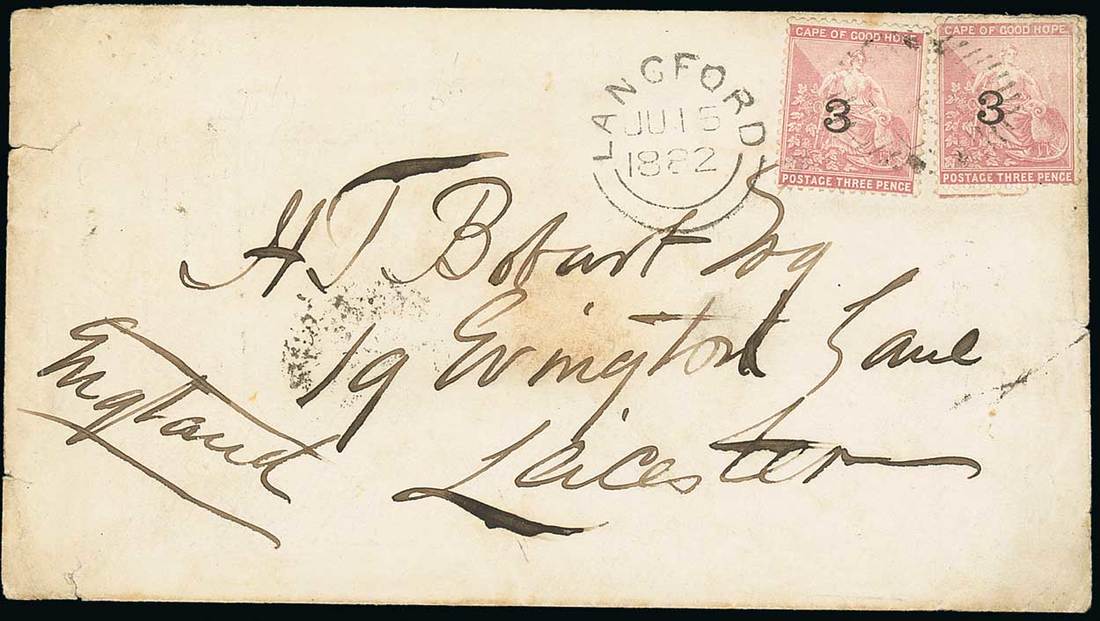 CAPE OF GOOD HOPE
3
POSTAGE THREE PENCE
CAPE OF GOOD HOPE
3
POSTAGE THREE PENCE
LANGFORD
JU 15
1882
H J Bobart Esq
19 Evington Lane
Leicester
England